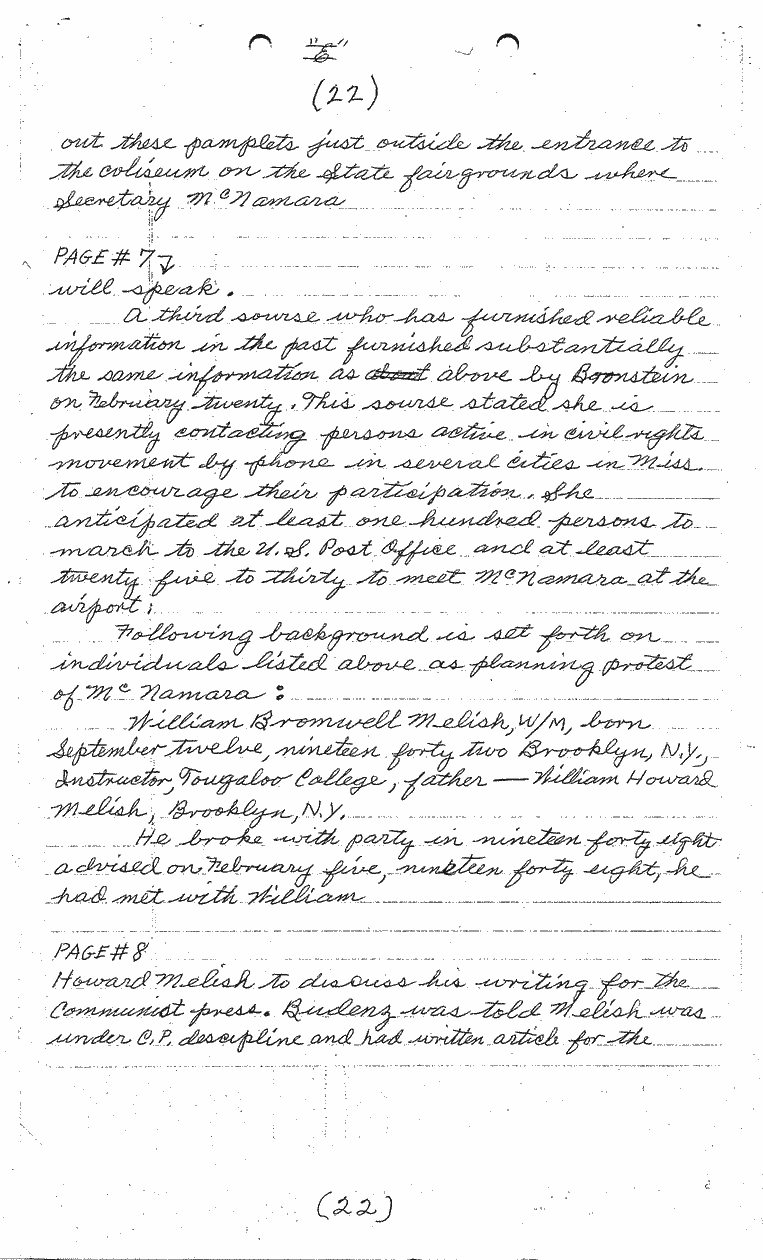 "E"
(22)
out these pamplets just outside the entrance to
the coliseum on the State fairgrounds where
Secretary McNamara
PAGE # 7
will speak.
A third sourse who has furnished reliable
information in the past furnished substantially
the same information as above by Bronstein
on February twenty. This sourse stated she is
presently contacting persons active in civil rights
movement by phone in several cities in Miss.
to encourage their participation. She
anticipated at least one hundred persons to
march to the U.S. Post Office and at least
twenty five to thirty to meet McNamara at the
airport;
Following background is set forth on
individuals listed above as planning protest
of McNamara :
William Bromwell Melish, W/M, born
September twelve, nineteen forty two Brooklyn, N.Y.,
Instructor, Tougaloo College, father — William Howard
Melish, Brooklyn, N.Y.
He broke with party in nineteen forty eight
advised on February five, nineteen forty eight, he
had met with William
PAGE # 8
Howard Melish to discuss his writing for the
Communist press. Budenz was told Melish was
under C.P. descipline and had written article for the
(22)